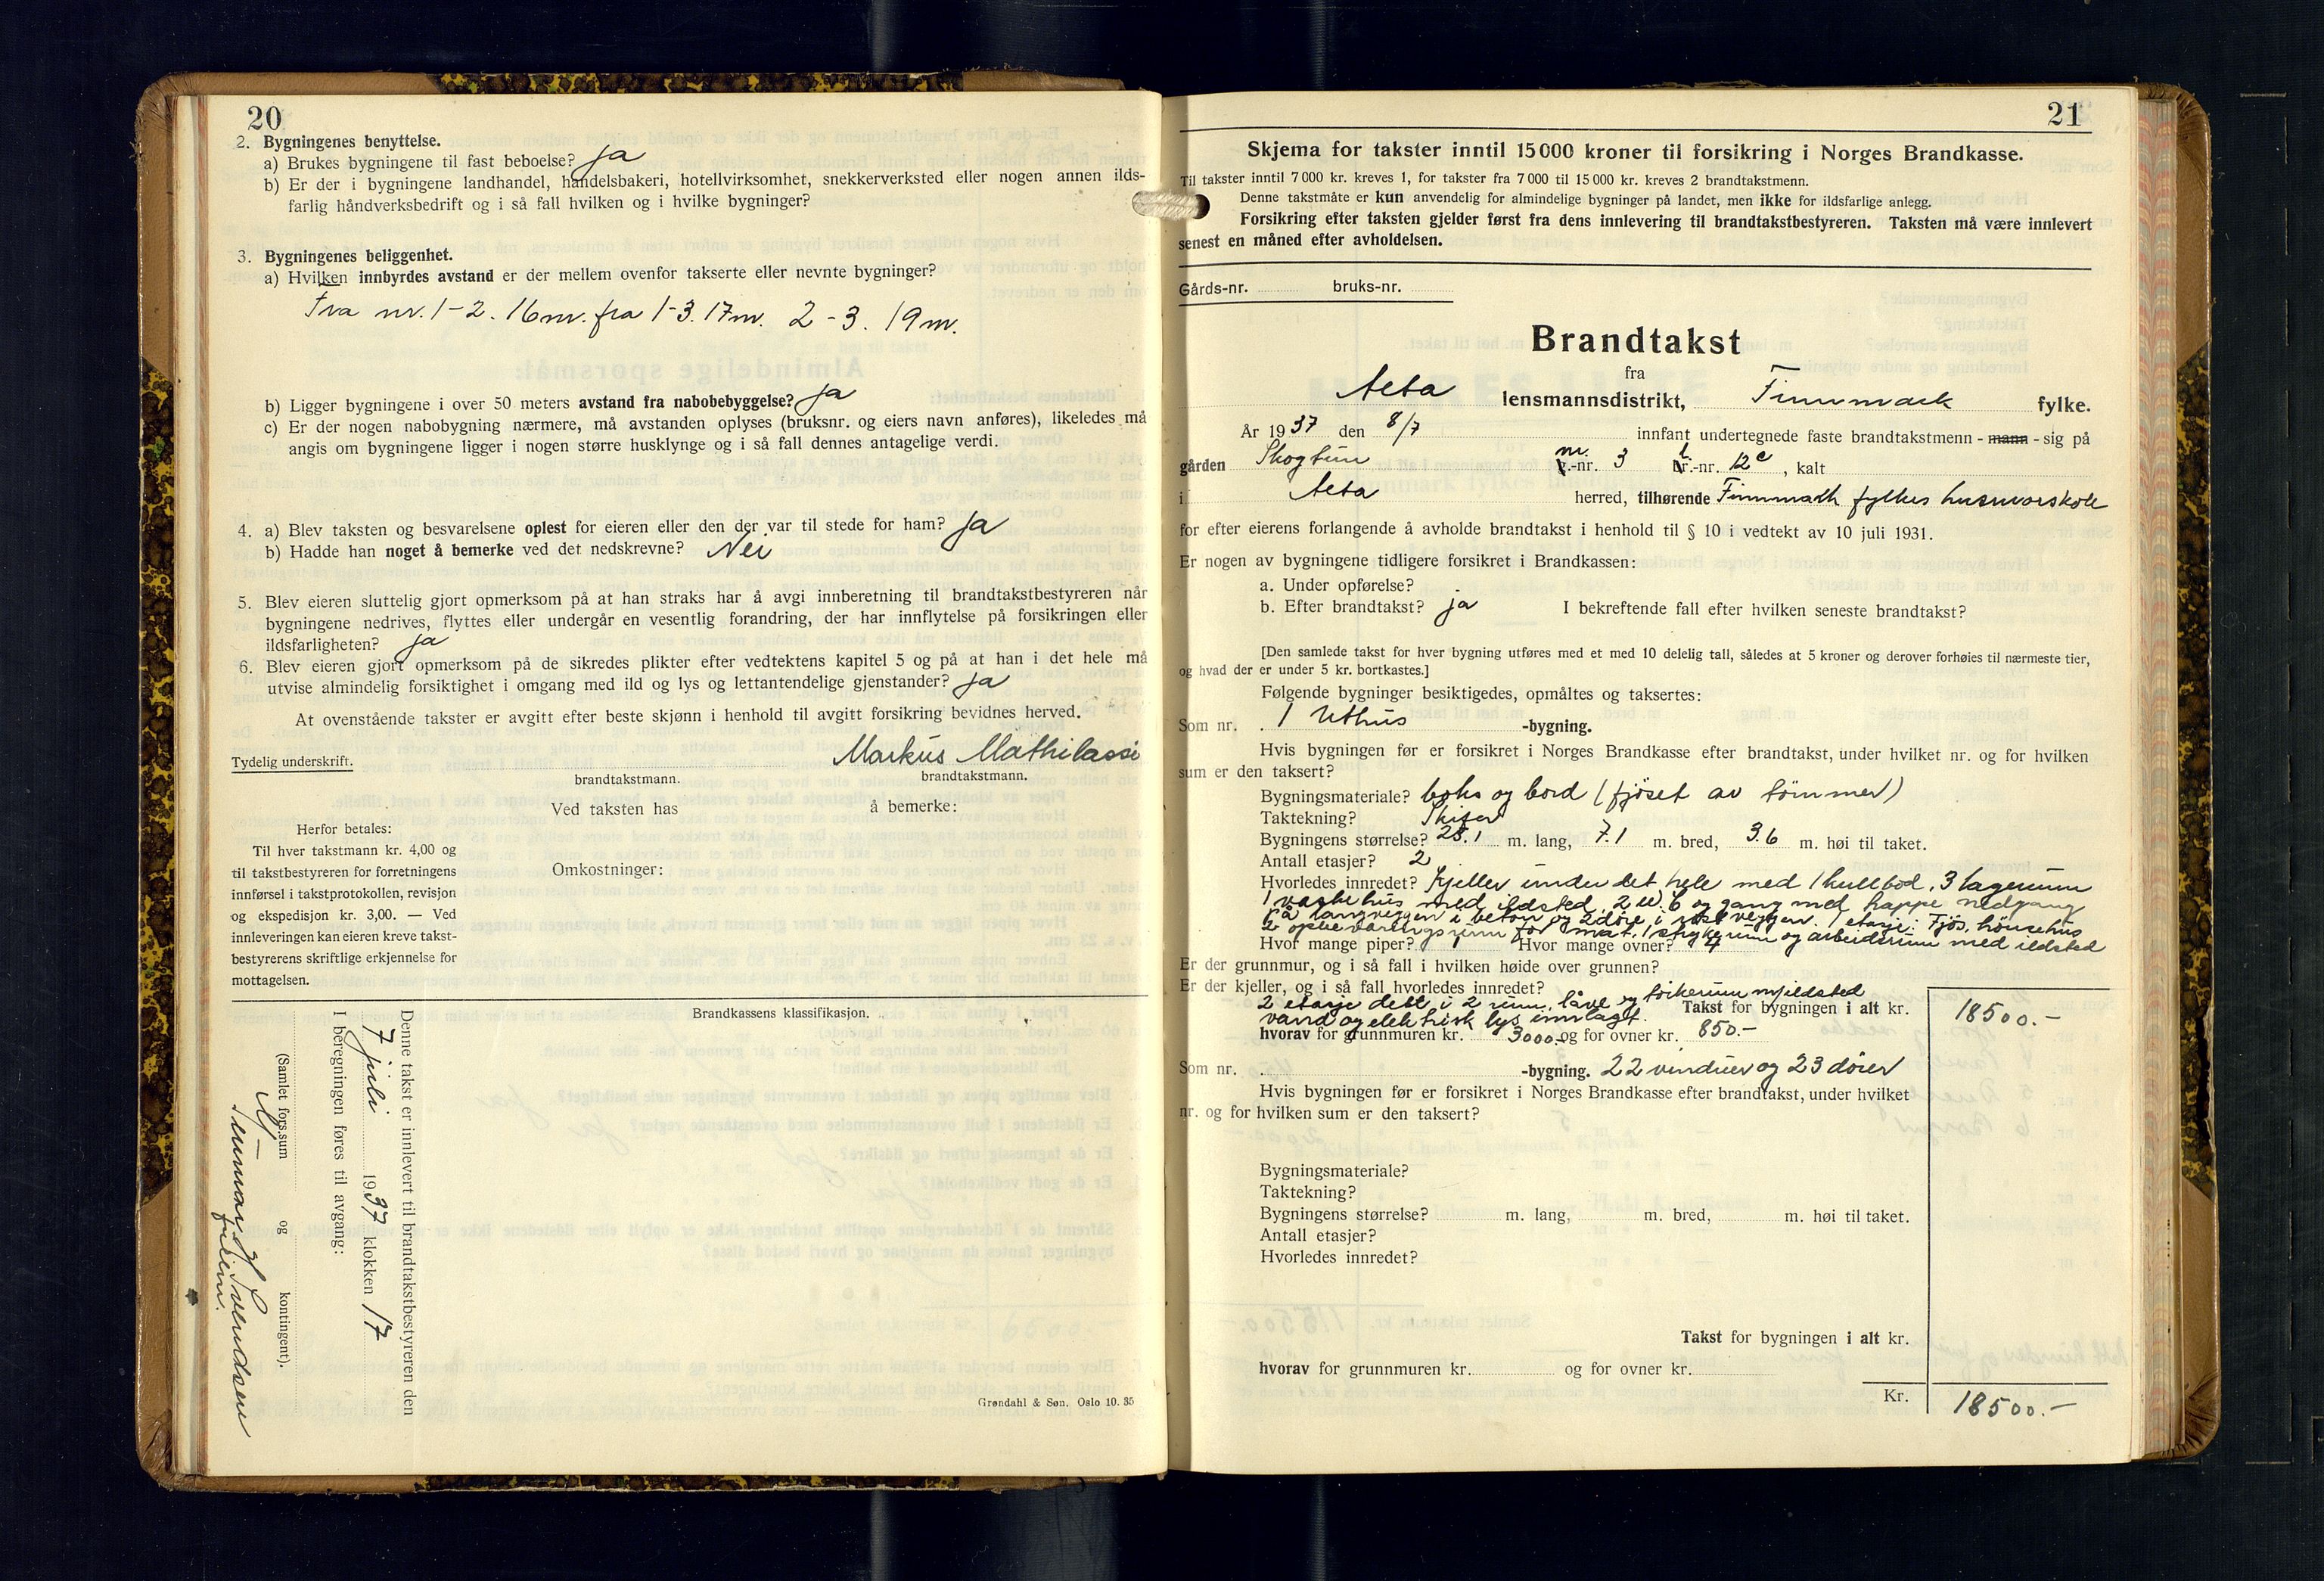 20
2. Bygningenes benyttelse.
a) Brukes bygningene til fast beboelse? ja
b) Er der i bygningene landhandel, handelsbakeri, hotellvirksomhet, snekkerverksted eller nogen annen ilds-
farlig håndverksbedrift og i så fall hvilken og i hvilke bygninger?
3. Bygningenes beliggenhet.
a) Hvilken innbyrdes avstand er der mellem ovenfor takserte eller nevnte bygninger?
Fra nr. 1-2. 16m. fra 1-3. 17m. 2-3. 19m.
b) Ligger bygningene i over 50 meters avstand fra nabobebyggelse? ja
c) Er der nogen nabobygning nærmere, må avstanden oplyses (bruksnr. og eiers navn anføres), likeledes må
angis om bygningene ligger i nogen større husklynge og i så fall dennes antagelige verdi.
4. a) Blev taksten og besvarelsene oplest for eieren eller den der var til stede for ham? ja
b) Hadde han noget å bemerke ved det nedskrevne? Nei
5. Blev eieren sluttelig gjort opmerksom på at han straks har å avgi innberetning til brandtakstbestyreren når
bygningene nedrives, flyttes eller undergår en vesentlig forandring, der har innflytelse på forsikringen eller
ildsfarligheten? ja
6. Blev eieren gjort opmerksom på de sikredes plikter efter vedtektens kapitel 5 og på at han i det hele må
utvise almindelig forsiktighet i omgang med ild og lys og lettantendelige gjenstander? ja
At ovenstående takster er avgitt efter beste skjønn i henhold til avgitt forsikring bevidnes herved.
Markus Mathilassi
Tydelig underskrift.
brandtakstmann. brandtakstmann.
Ved taksten has å bemerke:
Herfor betales:
Til hver takstmann kr. 4,00 og
til takstbestyreren for forretningens
innførsel i takstprotokollen, revisjon
og ekspedisjon kr. 3,00. — Ved
innleveringen kan eieren kreve takst-
bestyrerens skriftlige erkjennelse for
mottagelsen.
Omkostninger:
Brandkassens klassifikasjon.
Denne takst er innlevert til brandtakstbestyreren den
7 juli 1937 klokken 17
I beregningen føres til avgang:
(Samlet fors.sum og kontingent).
Svendsen
fullm.
Grøndahl & Søn. Oslo 10. 35
21
Skjema for takster inntil 15000 kroner til forsikring i Norges Brandkasse.
Til takster inntil 7 000 kr. kreves 1, for takster fra 7 000 til 15 000 kr. kreves 2 brandtakstmenn.
Denne takstmåte er kun anvendelig for almindelige bygninger på landet, men ikke for ildsfarlige anlegg.
Forsikring efter taksten gjelder først fra dens innlevering til brandtakstbestyreren. Taksten må være innlevert
senest en måned efter avholdelsen.
Gårds-nr. bruks-nr.
Brandtakst
fra
Alta lensmannsdistrikt, Finnmark fylke.
År 1937 den 8/7 innfant undertegnede faste brandtakstmenn - mann - sig på
gården Skogtun m.-nr. 3 l.-nr. 12c, kalt
i Alta herred, tilhørende Finnmark fylkes husmorskole
for efter eierens forlangende å avholde brandtakst i henhold til § 10 i vedtekt av 10 juli 1931.
Er nogen av bygningene tidligere forsikret i Brandkassen:
a. Under opførelse?
b. Efter brandtakst? ja I bekreftende fall efter hvilken seneste brandtakst?
[Den samlede takst for hver bygning utføres med et med 10 delelig tall, således at 5 kroner og derover forhøies til nærmeste tier,
og hvad der er under 5 kr. bortkastes.]
Følgende bygninger besiktigedes, opmåltes og taksertes:
Som nr. 1 Uthus -bygning.
Hvis bygningen før er forsikret i Norges Brandkasse efter brandtakst, under hvilket nr. og for hvilken
sum er den taksert?
Bygningsmateriale? boks og bord (fjøset av tømmer)
Taktekning? Skifer
Bygningens størrelse? 28.1 m. lang, 7.1 m. bred, 3.6 m. høi til taket.
Antall etasjer? 2
Hvorledes innredet? Kjeller under det hele med 1 kullbod, 3 lagerrum
1 vaskehus med ildsted, 2 W.C og gang med kappe nedgang
på langveggen i betong og 2 døre i veggen. 1 etasje: Fjøs, hønsehus
2 opbevaringsrum for mat, 1 strykerum og arbeidsrum med ildsted
Hvor mange piper? 1 Hvor mange ovner? 4
Er der grunnmur, og i så fall i hvilken høide over grunnen?
Er der kjeller, og i så fall hvorledes innredet?
2 etasje delt i 2 rum, låve og tørkerum m/ildsted
vand og elektrisk lys innlagt. Takst for bygningen i alt kr. 18500.-
hvorav for grunnmuren kr. 3000.- og for ovner kr. 850.-
Som nr. -bygning. 22 vinduer og 23 dører
Hvis bygningen før er forsikret i Norges Brandkasse efter brandtakst, under hvilket
nr. og for hvilken sum er den taksert?
Bygningsmateriale?
Taktekning?
Bygningens størrelse? m. lang, m. bred, m. høi til taket.
Antall etasjer?
Hvorledes innredet?
Takst for bygningen i alt kr.
hvorav for grunnmuren kr. og for ovner kr.
Kr. 18500.-